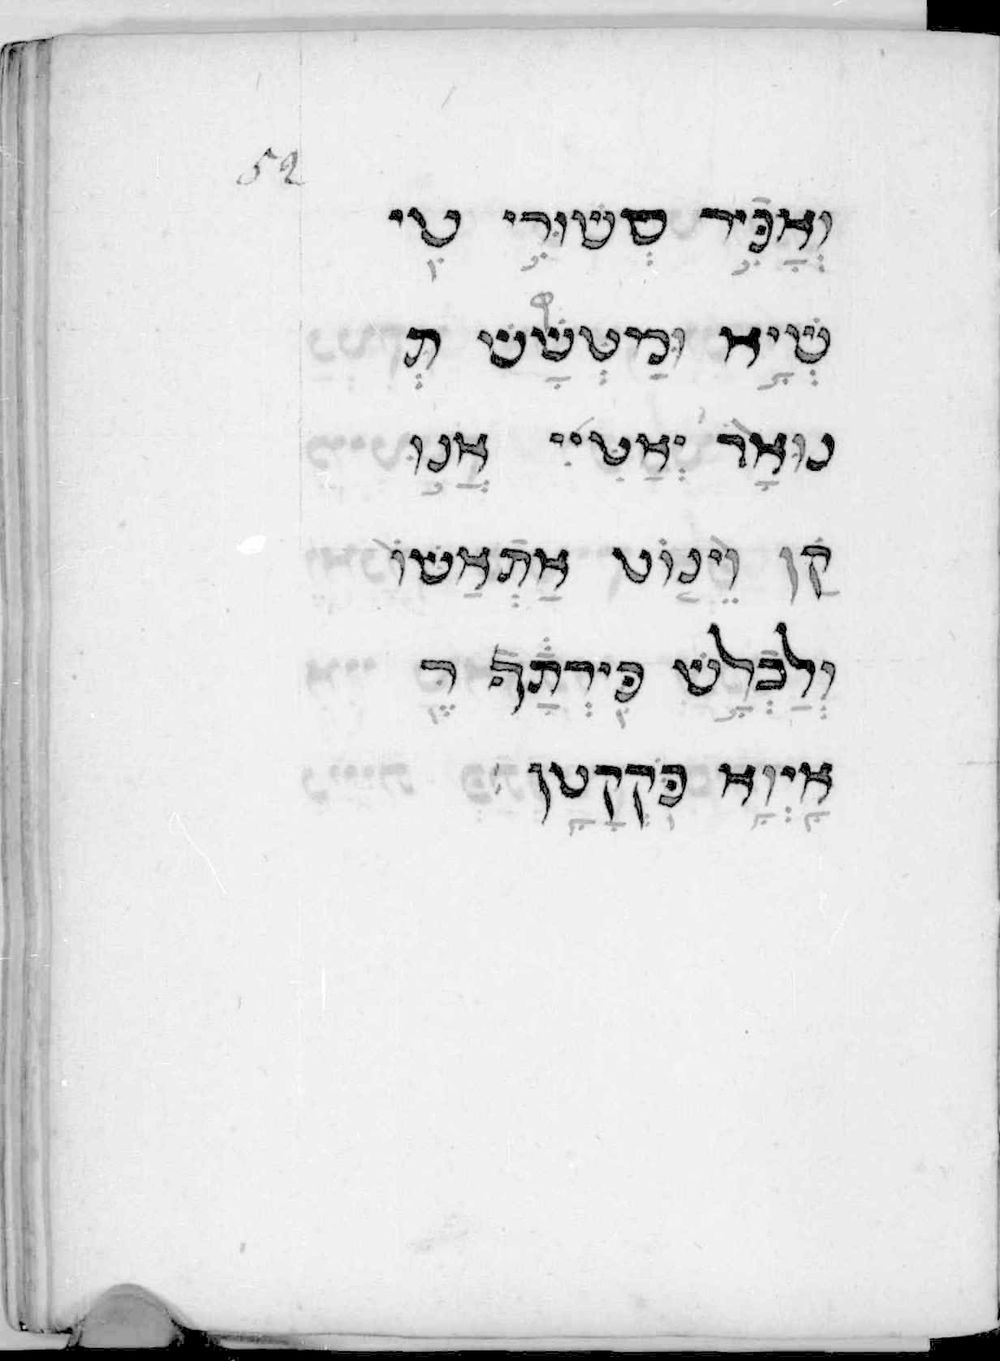 52
וְאַכֵּיר סְשׁוּרֵי עִי
שְׁיָא וּמַטְשָׁשׁ תְ
נוּאָר יְאַטִיי אֲנוֵ
קַן וֵינַוֹט אַתְאַשוֹ
וְלַכְלָשׁ כִּירְתַהּ הָ
אָיְוָא כִּקְקָטָן